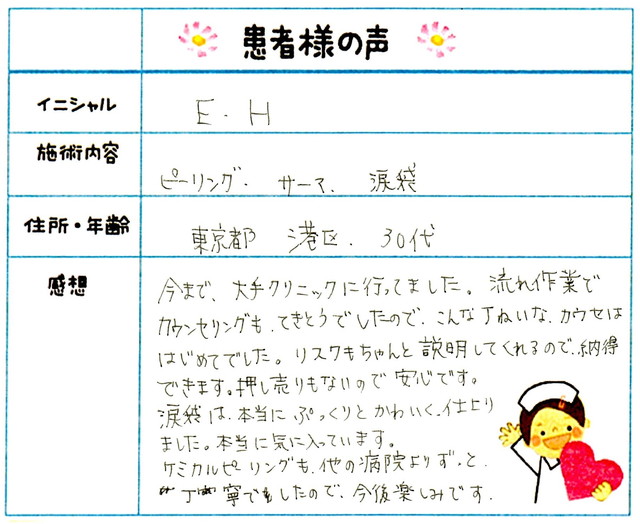 患者様の声
イニシャル
E.H
施術内容
ピーリング. サーマ、 涙袋
住所・年齢
東京都 港区. 30代
感想
今まで、大手クリニックに行ってました。流れ作業で
カウンセリングも、てきとうでしたので、こんな丁ねいな、カウセは
はじめてでした。リスクもちゃんと説明してくれるので、納得
できます。押し売りもないので安心です。
涙袋は、本当にぷっくりとかわいく、仕上り
ました。本当に気に入っています。
ケミカルピーリングも、他の病院よりずっと、
丁寧でもしたので、今後楽しみです.